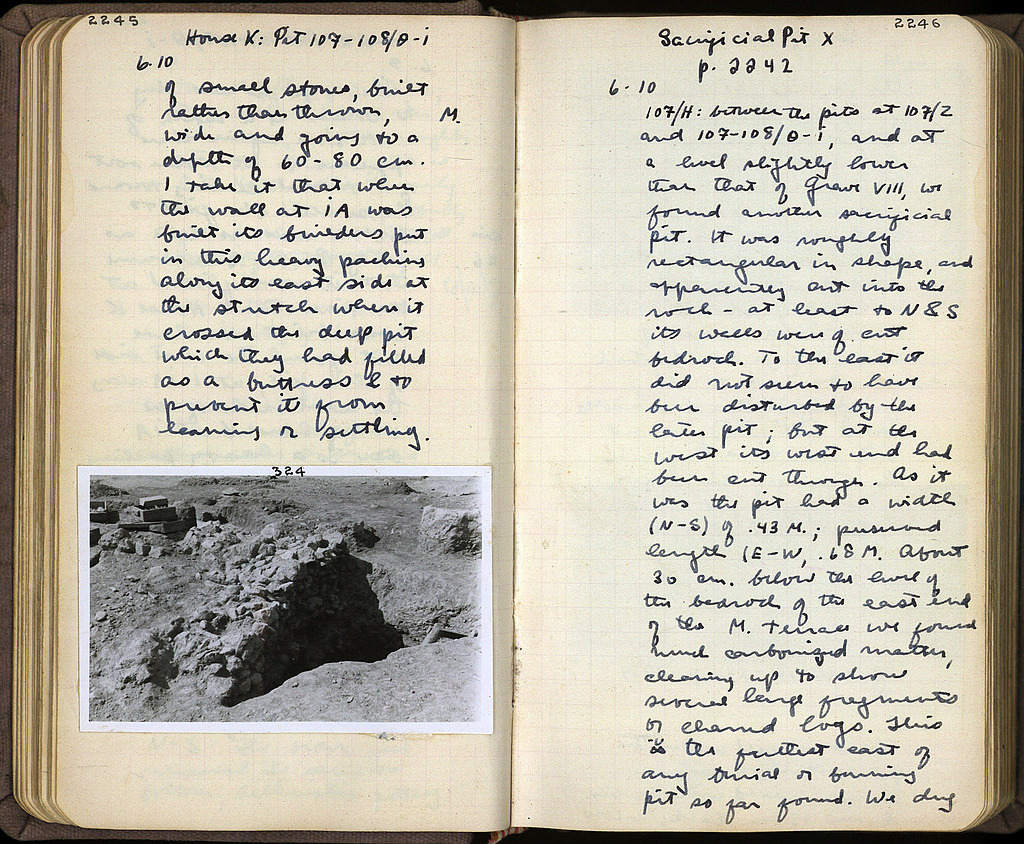 2245
House K: Pit 107-108/Θ-i
6.10
of small stones, built
rather than thrown, M.
wide and going to a
depth of 60-80 cm.
I take it that when
the wall at iA was
built its builders put
in this heavy packing
along its east side at
the stretch where it
crossed the deep pit
which they had filled
as a buttress & to
prevent it from
leaning or settling.
324
2246
Sacrificial Pit X
p. 2242
6.10
107/H: between the pits at 107/Z
and 107-108/Θ-i, and at
a level slightly lower
than that of Grave VIII, we
found another sacrificial
pit. It was roughly
rectangular in shape, and
apparently cut into the
rock - at least to N & S
its walls were of cut
bedrock. To the east it
did not seem to have
been disturbed by the
later pit; but at the
west its west end had
been cut through. As it
was the pit had a width
(N-S) of .43 M.; preserved
length (E-W, .68 M. About
30 cm. below the level of
the bedrock of the east end
of the M. Terrace we found
much carbonized matter,
clearing up to show
several large fragments
of charred logs. This
is the furthest east of
any burial or burning
pit so far found. We dug